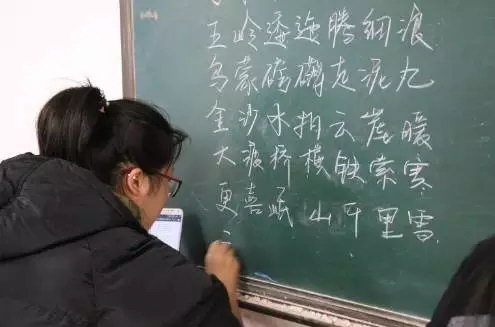 五岭逶迤腾细浪
乌蒙磅礴走泥丸
金沙水拍云崖暖
大渡桥横铁索寒
更喜岷山千里雪